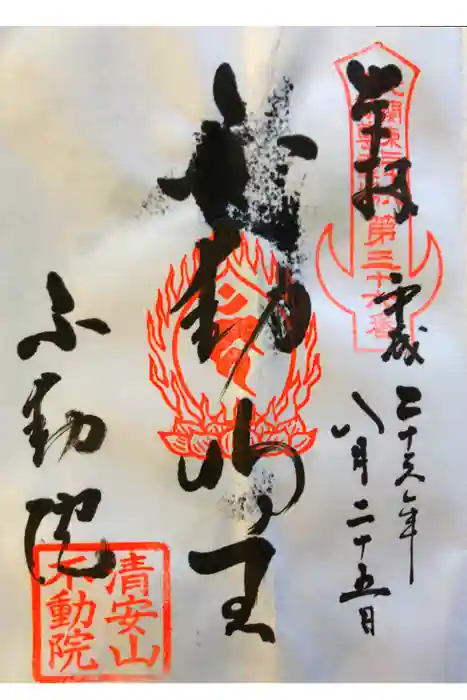 奉拝
第三十六番
平成二十六年
八月二十五日
不動明王
不動院
清安山
不動院